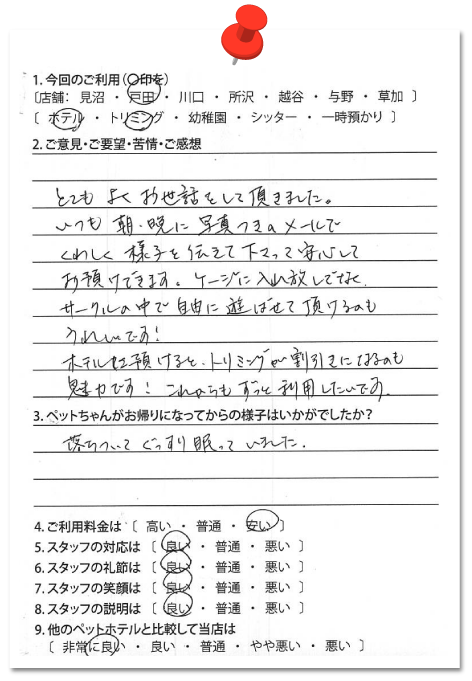 1. 今回のご利用(〇印を)
〔店舗： 見沼 ・ 戸田 ・ 川口 ・ 所沢 ・ 越谷 ・ 与野 ・ 草加 〕
〔 ホテル ・ トリミング ・ 幼稚園 ・ シッター ・ 一時預かり 〕
2. ご意見・ご要望・苦情・ご感想
とても よく お世話をして頂きました。
いつも 朝・晩に 写真つきのメールで
くわしく 様子を伝えて下さって安心して
お預けできます。ケージに入れ放しでなく、
サークルの中で自由に遊ばせて頂けるのも
うれしいです！
ホテルに預けると、トリミングが割引きになるのも
魅力です！ これからもずっと利用したいです。
3. ペットちゃんがお帰りになってからの様子はいかがでしたか？
落ちついて ぐっすり眠って いました。
4. ご利用料金は 〔 高い ・ 普通 ・ 安い 〕
5. スタッフの対応は 〔 良い ・ 普通 ・ 悪い 〕
6. スタッフの礼節は 〔 良い ・ 普通 ・ 悪い 〕
7. スタッフの笑顔は 〔 良い ・ 普通 ・ 悪い 〕
8. スタッフの説明は 〔 良い ・ 普通 ・ 悪い 〕
9. 他のペットホテルと比較して当店は
〔 非常に良い ・ 良い ・ 普通 ・ やや悪い ・ 悪い 〕